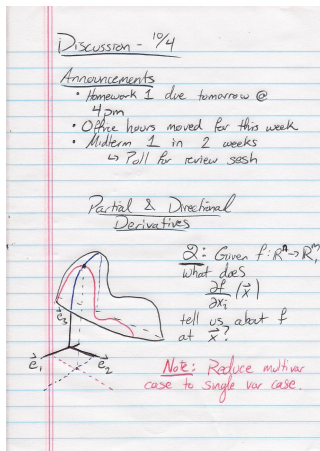 Discussion - 10/4
Announcements
• Homework 1 due tomorrow @
4pm
• Office hours moved for this week
• Midterm 1 in 2 weeks
↳ Poll for review sesh
Partial & Directional
Derivatives
Q: Given f: Rⁿ → Rᵐ,
what does
∂f/∂xᵢ (x⃗)
tell us about f
at x⃗?
e⃗₃
e⃗₁
e⃗₂
Note: Reduce multivar
case to single var case.